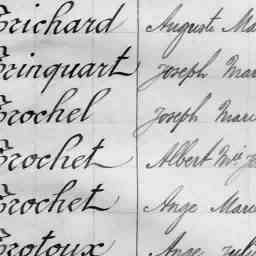 Crichard Auguste Ma
Crinquart Joseph Mari
Crochel Joseph Marie
Crochet Albert Mie Jo
Crochet Ange Marie
Crotoux Ange Juli